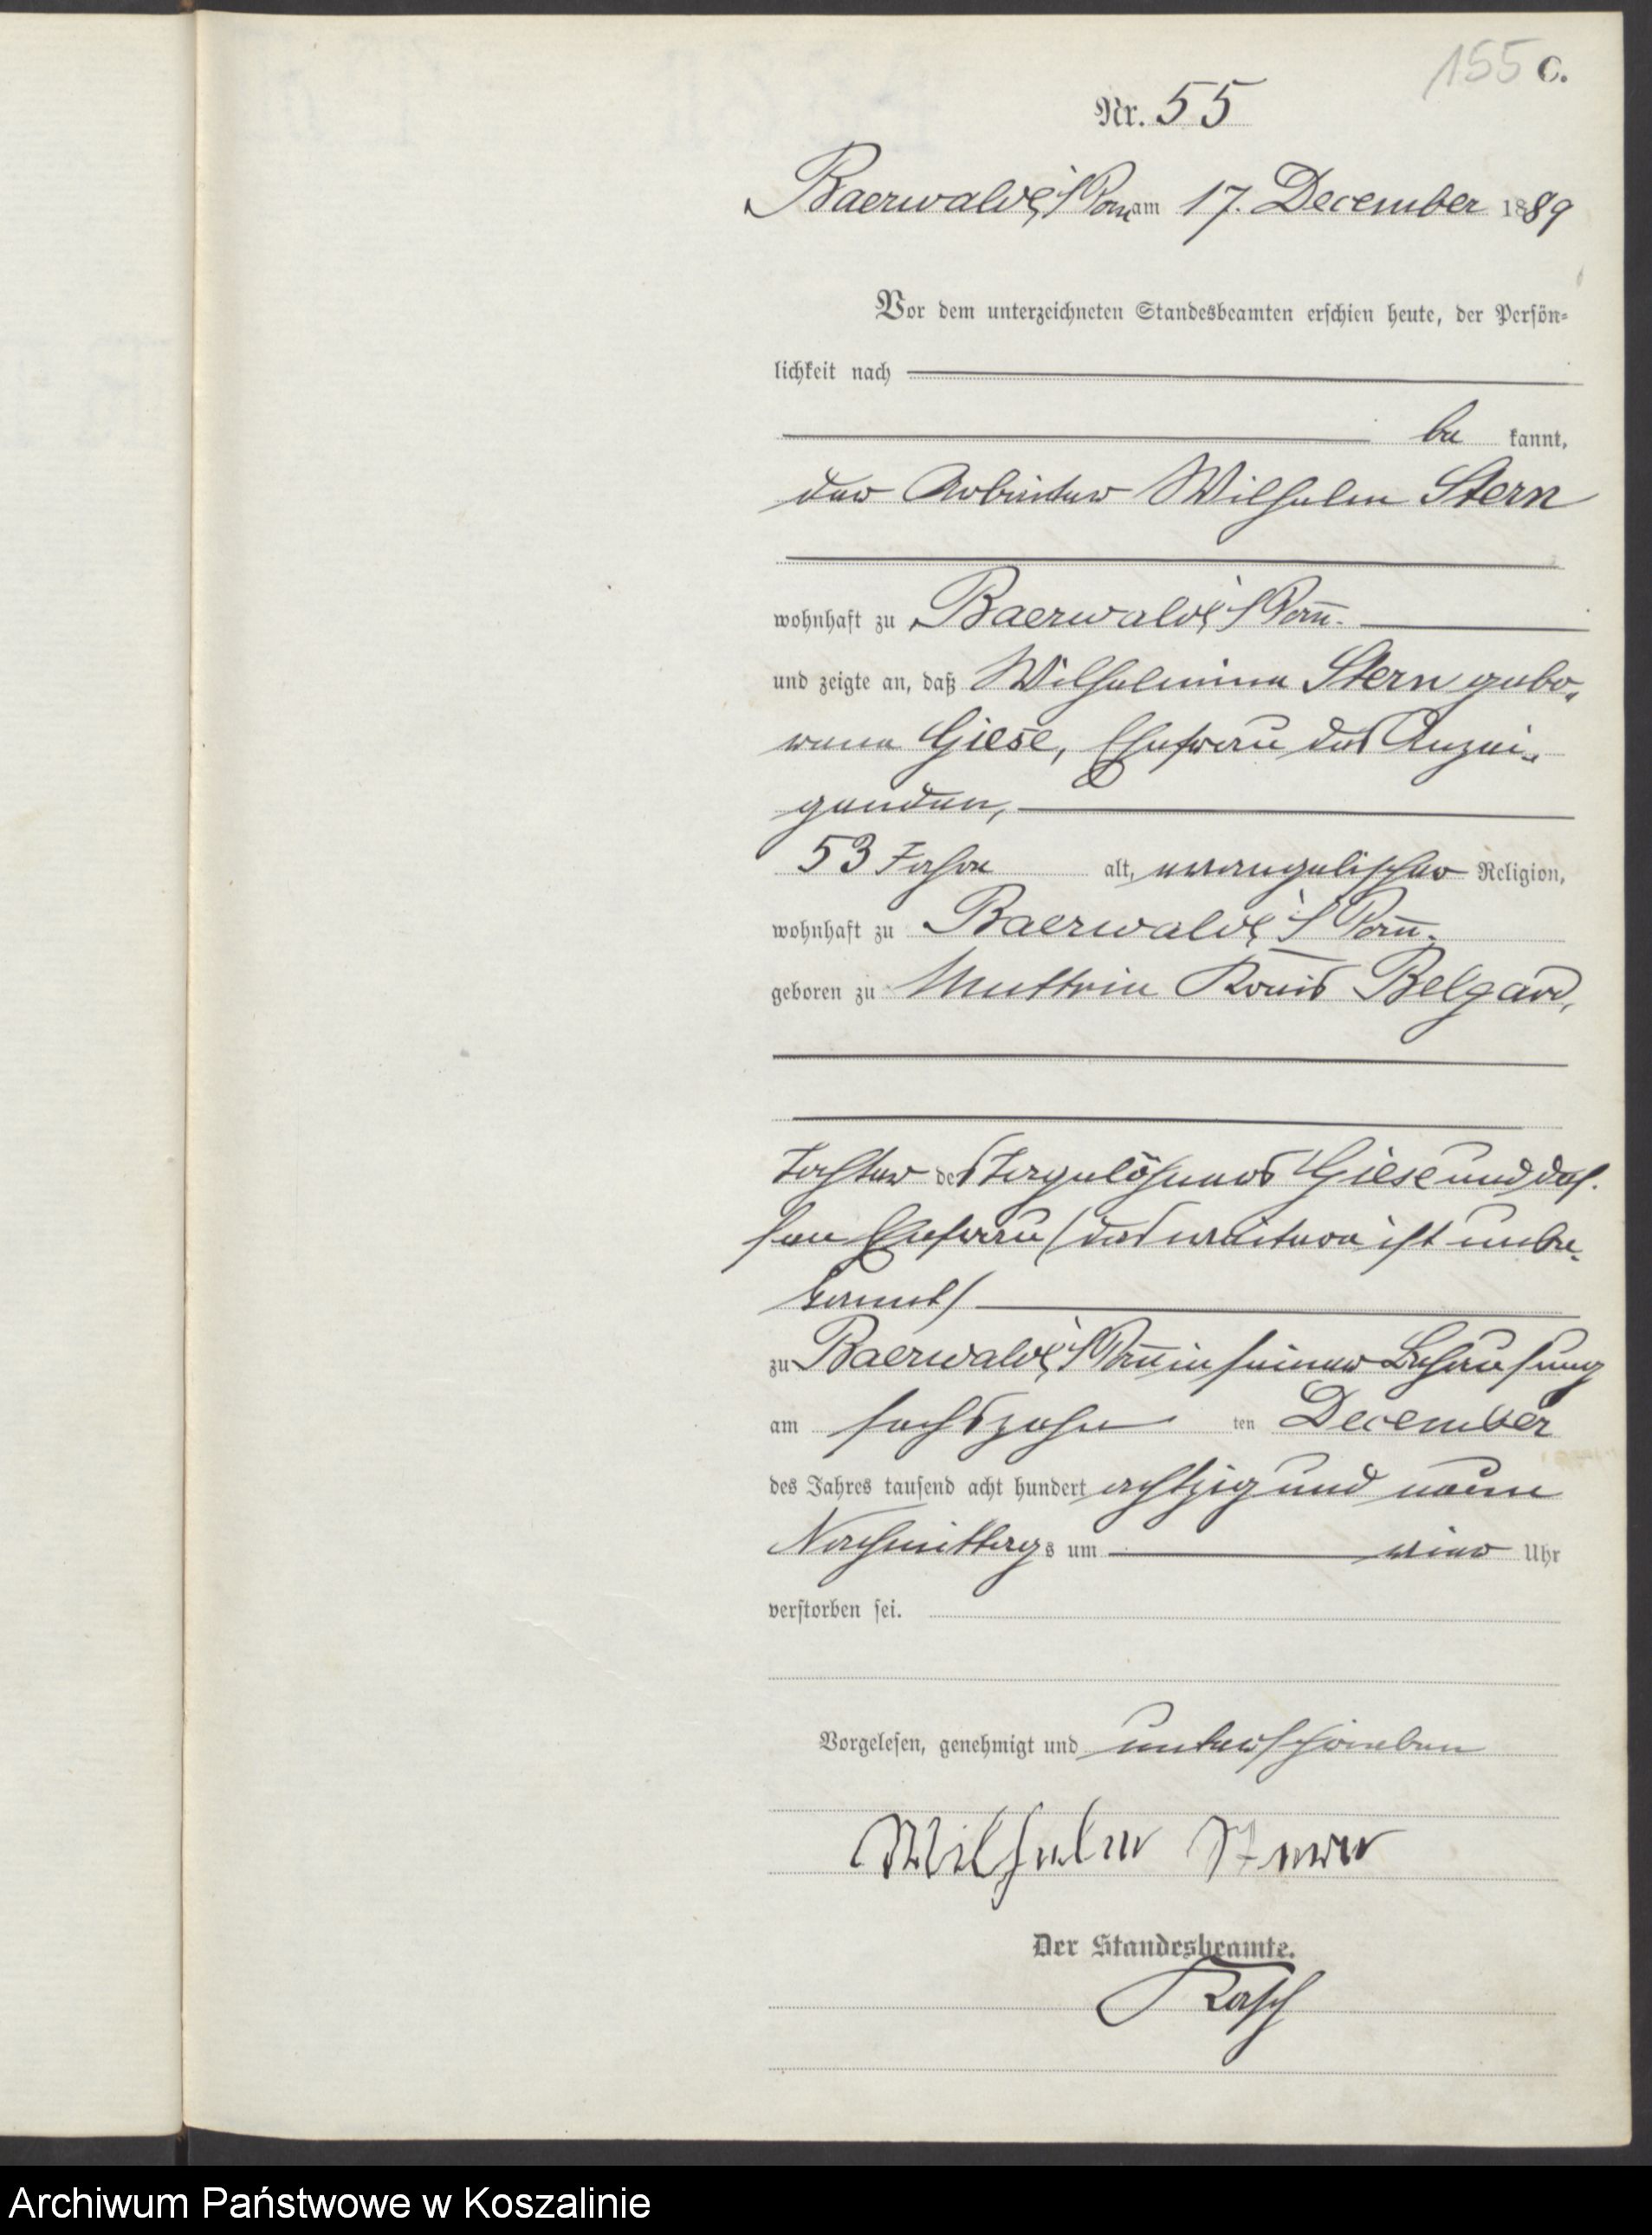 155 C.
Nr. 55
Baerwalde i/Pom am 17. December 1889
Vor dem unterzeichneten Standesbeamten erschien heute, der Persön-
lichkeit nach
be kannt,
der Arbeiter Wilhelm Stern
wohnhaft zu Baerwalde i/Pom̅.
und zeigte an, daß Wilhelmine Stern gebo-
rene Giese, Ehefrau des Anzei-
genden,
53 Jahre alt, evangelischer Religion,
wohnhaft zu Baerwalde i/Pom̅.
geboren zu Muttrin Kreis Belgard,
Tochter des Tagelöhners Giese und des-
sen Ehefrau (das weitere ist unbe-
kannt)
zu Baerwalde i/Pom̅ in seiner Behausung
am sechszehn ten December
des Jahres tausend acht hundert achtzig und neun
Nachmittags um vier Uhr
verstorben sei.
Vorgelesen, genehmigt und unterschrieben
Wilhelm Stern
Der Standesbeamte.
Archiwum Państwowe w Koszalinie